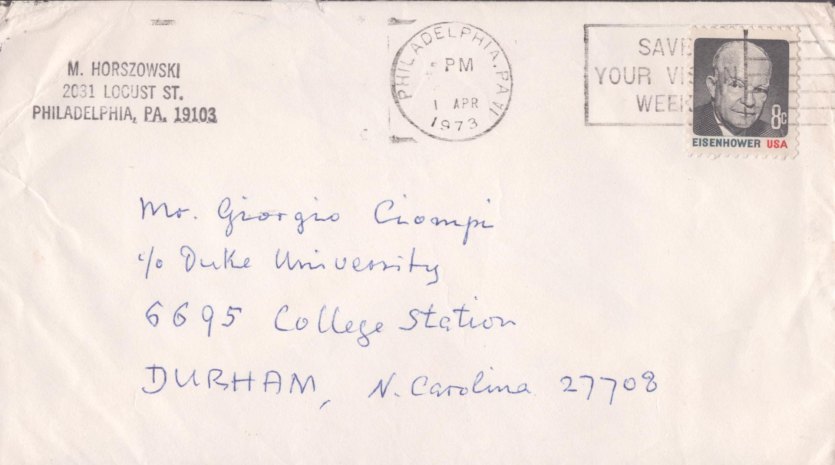 M. HORSZOWSKI
2031 LOCUST ST.
PHILADELPHIA, PA. 19103
PHILADELPHIA, PA
PM
1 APR
1973
SAVE
YOUR VISION
WEEK
8c
EISENHOWER USA
Mr. Giorgio Ciompi
c/o Duke University
6695 College Station
DURHAM, N. Carolina 27708